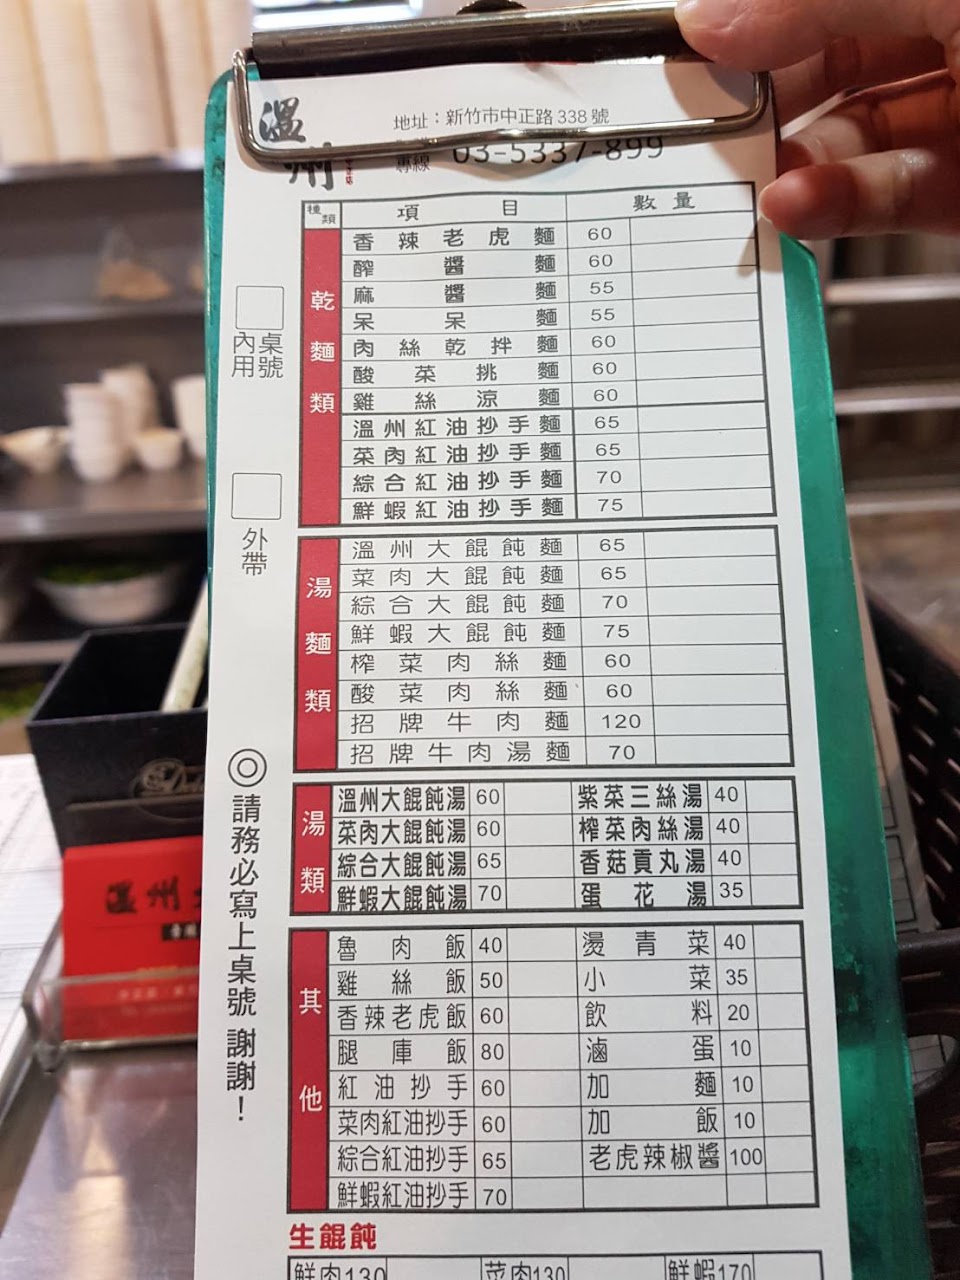 溫州
地址：新竹市中正路338號
專線 03-5337-899
種類 項目 數量
乾麵類
香辣老虎麵 60
醡醬麵 60
麻醬麵 55
呆呆麵 55
肉絲乾拌麵 60
酸菜挑麵 60
雞絲涼麵 60
溫州紅油抄手麵 65
菜肉紅油抄手麵 65
綜合紅油抄手麵 70
鮮蝦紅油抄手麵 75
湯麵類
溫州大餛飩麵 65
菜肉大餛飩麵 65
綜合大餛飩麵 70
鮮蝦大餛飩麵 75
榨菜肉絲麵 60
酸菜肉絲麵 60
招牌牛肉麵 120
招牌牛肉湯麵 70
湯類
溫州大餛飩湯 60 紫菜三絲湯 40
菜肉大餛飩湯 60 榨菜肉絲湯 40
綜合大餛飩湯 65 香菇貢丸湯 40
鮮蝦大餛飩湯 70 蛋花湯 35
其他
魯肉飯 40 燙青菜 40
雞絲飯 50 小菜 35
香辣老虎飯 60 飲料 20
腿庫飯 80 滷蛋 10
紅油抄手 60 加麵 10
菜肉紅油抄手 60 加飯 10
綜合紅油抄手 65 老虎辣椒醬 100
鮮蝦紅油抄手 70
生餛飩
鮮肉130 菜肉130 鮮蝦170
內用 桌號
外帶
◎請務必寫上桌號 謝謝！
溫州